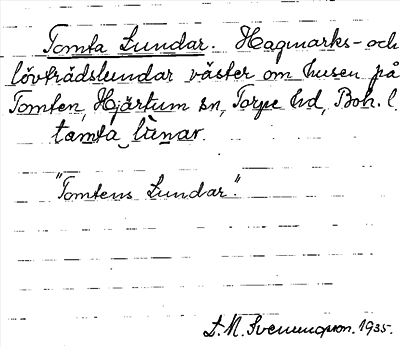 Tomta Lundar. Hagmarks- och
lövträdslundar väster om husen på
Tomten, Hjärtum sn, Torpe hd, Boh. l.
tamta lùnar.
"Tomtens Lundar".
L. N. Svensson. 1935.